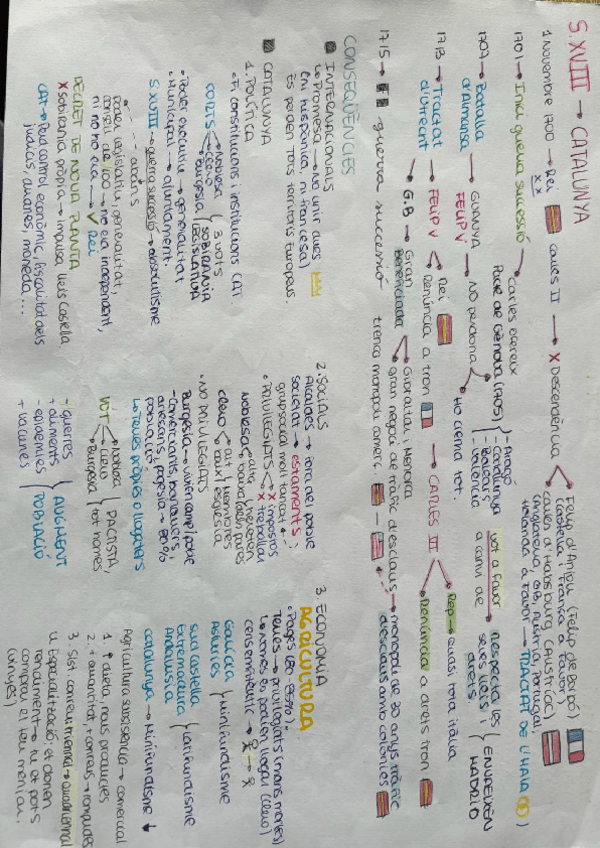 S.XVIII → CATALUNYA
1 Novembre 1700 → Rei Carles II → X Descendència
Felip d'Anjou (Felip de Borbó)
(Castella i França a favor)
Carles d'Habsburg (Àustria)
(Anglaterra, GB, Àustria, Portugal,
Holanda a favor → TRACTAT DE L'HAIA)
1701 → Inici guerra successió
Carles exèrcit
Pacte de Gènova (1705)
- Aragó
- Catalunya
- Balears
- València
vot a favor
a canvi de
respecta les
seves lleis i
drets
ENVAEIXEN
MADRID
1707 → Batalla
d'Almansa
GUANYA
FELIP V
NO perdona
Ho crema tot.
1713 → Tractat
d'Utrecht
FELIP V
Rei
Renúncia a tron
CARLES III
Rep → quasi tota itàlia
Renúncia a drets tron
G.B → Gran
Beneficiada
Gibraltar i Menorca
gran negoci de tràfic d'esclaus → monopoli de 30 anys tràfic
d'esclaus amb colònies
trenca monopoli comerç.
1715 → guerra successió
CONSEQÜÈNCIES
INTERNACIONALS
Promesa → No unir dues
(ni hispànica, ni francesa)
Es perden tots territoris europeus.
CATALUNYA
1. POLÍTICA
• Fi constitucions i institucions CAT
CORTS
Noblesa
clero
Burgesia
3 vots
SOBIRANIA
LEGISLATIVA
• Poder executiu → generalitat
• Municipal → ajuntament.
S.XVIII → guerra successió → absolutisme
abans
poder legislatiu, generalitat,
consell de 100 → no era independent,
ni no no era → ✓ Rei
DECRET DE NOVA PLANTA
X sobirania pròpia → impulsa lleis castella
CAT → Perd control econòmic, fiscalitat dels
judicis, duanes, moneda...
2. SOCIALS
Alcaldes → fora del poble
societat → estaments:
grup social molt tancat
• PRIVILEGIATS
X impostos
X treballar
noblesa
alta
baixa
hereten
dels pares
clero
alt
baix
esglesia
• NO PRIVILEGIATS
Burgesia → vivien camp/poble
- Comerciants, banquers,
artesans, pagesia → 80%
població
Terres pròpies o llogaters
VOT
Noblesa
clero
Burgesia
PACTISTA,
tot homes
- guerres
+ aliments
- epidèmies
+ vacunes
AUGMENT
POBLACIÓ
3. ECONOMIA
AGRICULTURA
Terres → privilegiats (mans mortes)
Només es poden llogar (clero)
Galícia
Astúries
Minifundisme
sud Castella
Extremadura
Andalusia
Latifundisme
Catalunya → Minifundisme ↓
Agricultura subsistència → comercial
1. dieta, nous productes
3. Sist. conreu triennal → quadriennal
4. Especialització: et donen
rendiment → tu et pots
comprar el teu menjar.
(vinyes)